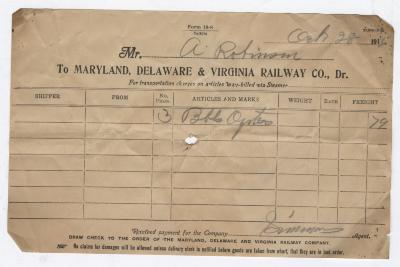 Form 18-S
Oct 28 191
Mr. A Robinson
To MARYLAND, DELAWARE & VIRGINIA RAILWAY CO., Dr.
For transportation charges on articles way-billed via Steamer
SHIPPER FROM No. Pkgs. ARTICLES AND MARKS WEIGHT RATE FREIGHT
3 Bbls Oysters 79
Received payment for the Company Agent.
DRAW CHECK TO THE ORDER OF THE MARYLAND, DELAWARE AND VIRGINIA RAILWAY COMPANY.
No claims for damages will be allowed unless delivery clerk is notified before goods are taken from wharf, that they are in bad order.